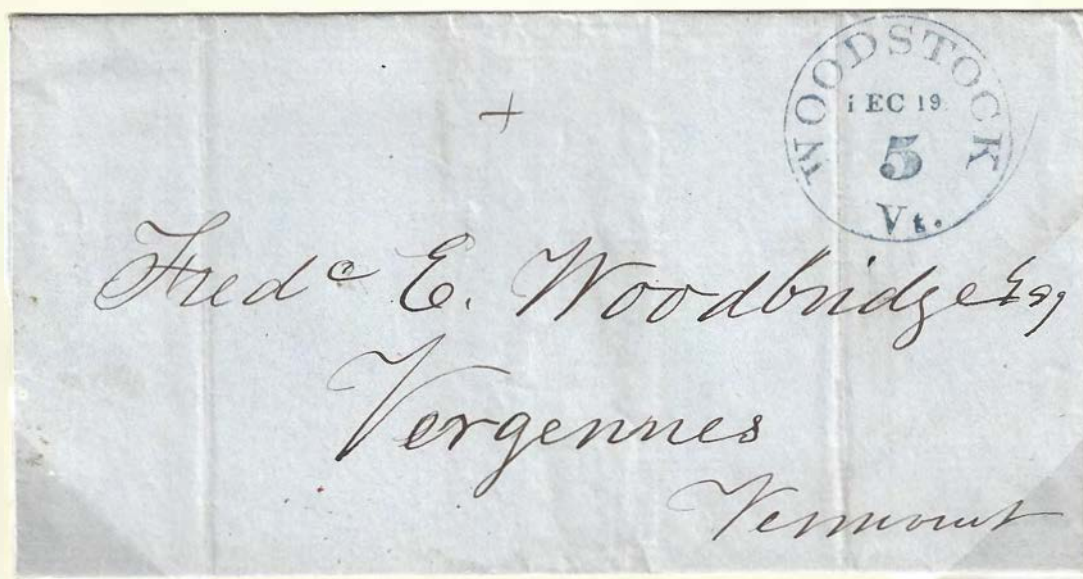 WOODSTOCK
EC 19
5
Vt.
+
Fred^c E. Woodbridge Esq
Vergennes
Vermont